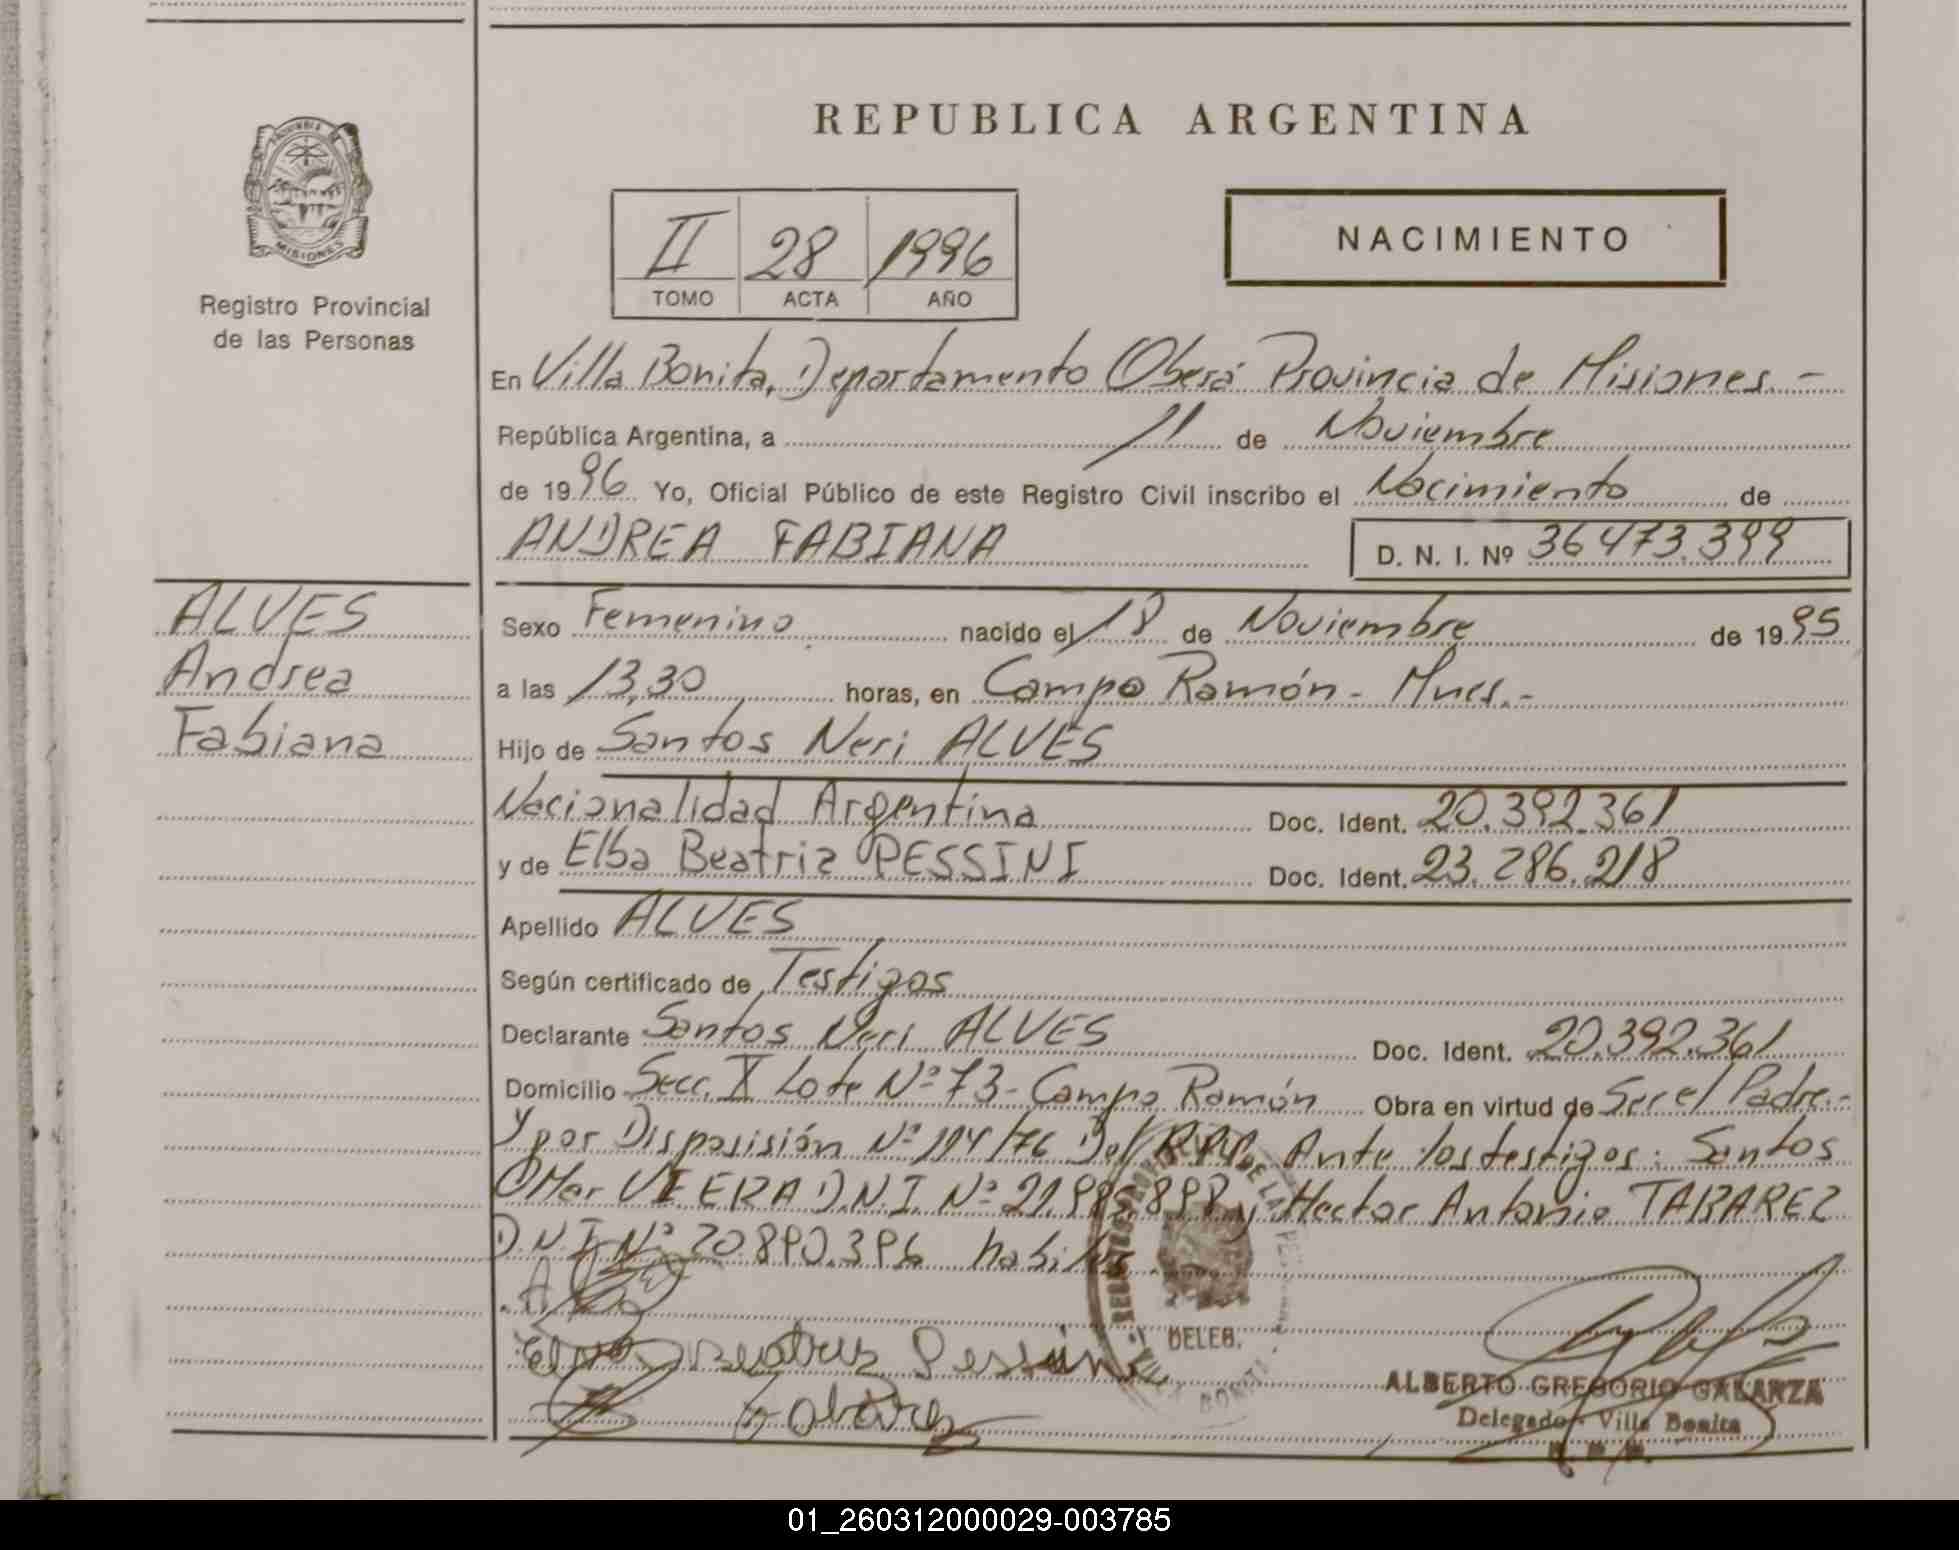 REPUBLICA ARGENTINA
PROVINCIA DE
MISIONES
Registro Provincial
de las Personas
II 28 1996
TOMO ACTA AÑO
NACIMIENTO
En Villa Bonita, Departamento Oberá Provincia de Misiones.-
República Argentina, a 11 de Noviembre
de 1996 Yo, Oficial Público de este Registro Civil inscribo el Nacimiento de
ANDREA FABIANA D. N. I. Nº 36473.399
ALVES
Andrea
Fabiana
Sexo Femenino nacido el 18 de Noviembre de 1995
a las 13,30 horas, en Campo Ramón - Mnes.-
Hijo de Santos Neri ALVES
Nacionalidad Argentina Doc. Ident. 20.392.361
y de Elba Beatriz PESSINI Doc. Ident. 23.286.218
Apellido ALVES
Según certificado de Testigos
Declarante Santos Neri ALVES Doc. Ident. 20.392.361
Domicilio Secc. X Lote Nº 73 - Campo Ramón Obra en virtud de Ser el Padre.-
y por Disposisión Nº 114/76 Del Ante los testigos: Santos
OMar VIERA D.N.I. Nº y Hector Antonio TABAREZ
D.N.I. Nº 20.890.396 habiles
DELEG.
Beatriz Pessini
Tabarez
ALBERTO GREGORIO GALARZA
Delegado - Villa Bonita
01_260312000029-003785